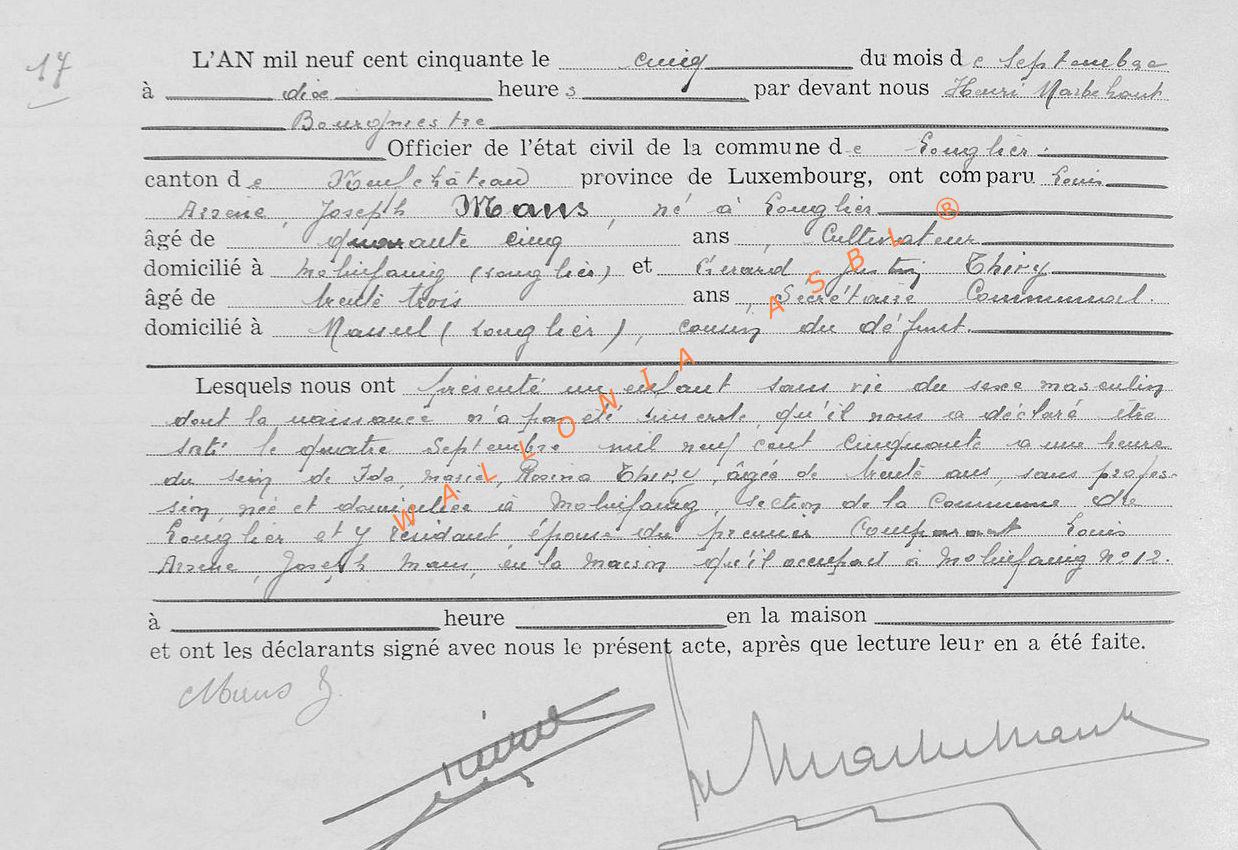 17
L'AN mil neuf cent cinquante le cinq du mois d e Septembre
à dix heure s par devant nous Henri Marbehant
Bourgmestre
Officier de l'état civil de la commune d e Longlier.
canton d e Neufchâteau province de Luxembourg, ont comparu Louis
Arsène, Joseph Maus, né à Longlier
âgé de quarante cinq ans, Cultivateur
domicilié à Molinfaing (Longlier) et Gérard Justin Thiry
âgé de trente trois ans, Secrétaire Communal.
domicilié à Massul (Longlier), cousin du défunt.
Lesquels nous ont présenté un enfant sans vie du sexe masculin
dont la naissance n'a pas été inscrite, qu'il nous a déclaré être
sorti le quatre Septembre mil neuf cent cinquante a une heure
du sein de Ida, Marie, Rosina Thiry, âgée de trente ans, sans profes-
sion, née et domiciliée à Molinfaing, section de la Commune de
Longlier et y résidant, épouse du premier Comparant Louis
Arsène, Joseph Maus, en la maison qu'il occupait à Molinfaing N° 12.
à heure en la maison
et ont les déclarants signé avec nous le présent acte, après que lecture leur en a été faite.
Maus
WALLONIA ASBL ®